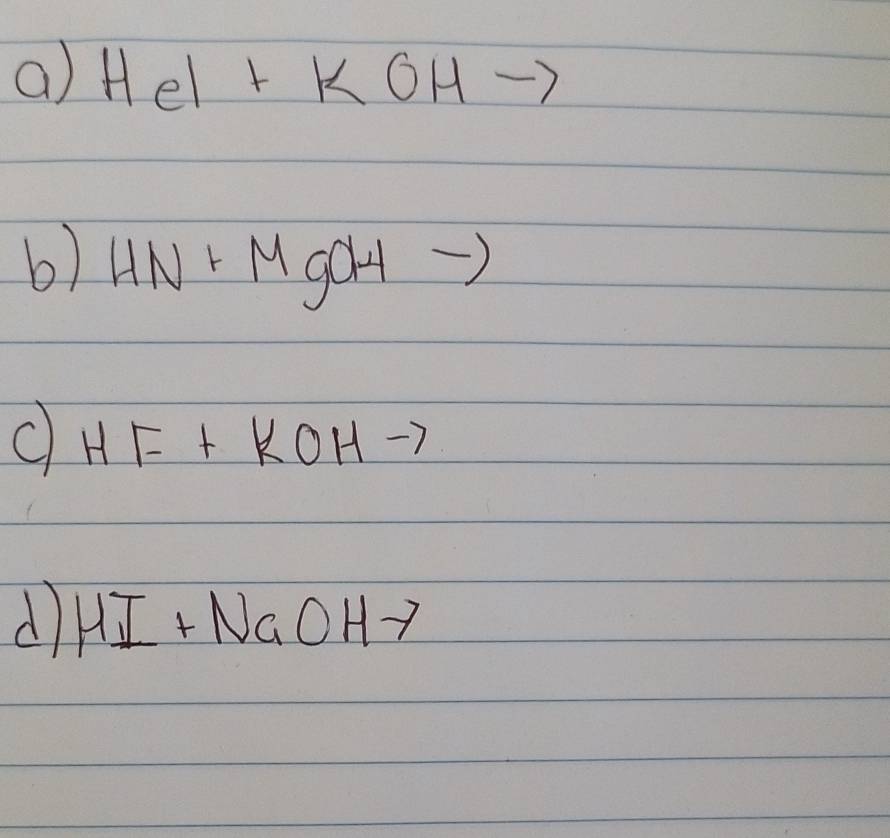 a) Hel + KOH →
b) HN + MgOH →
c) HF + KOH →
d) HI + NaOH →